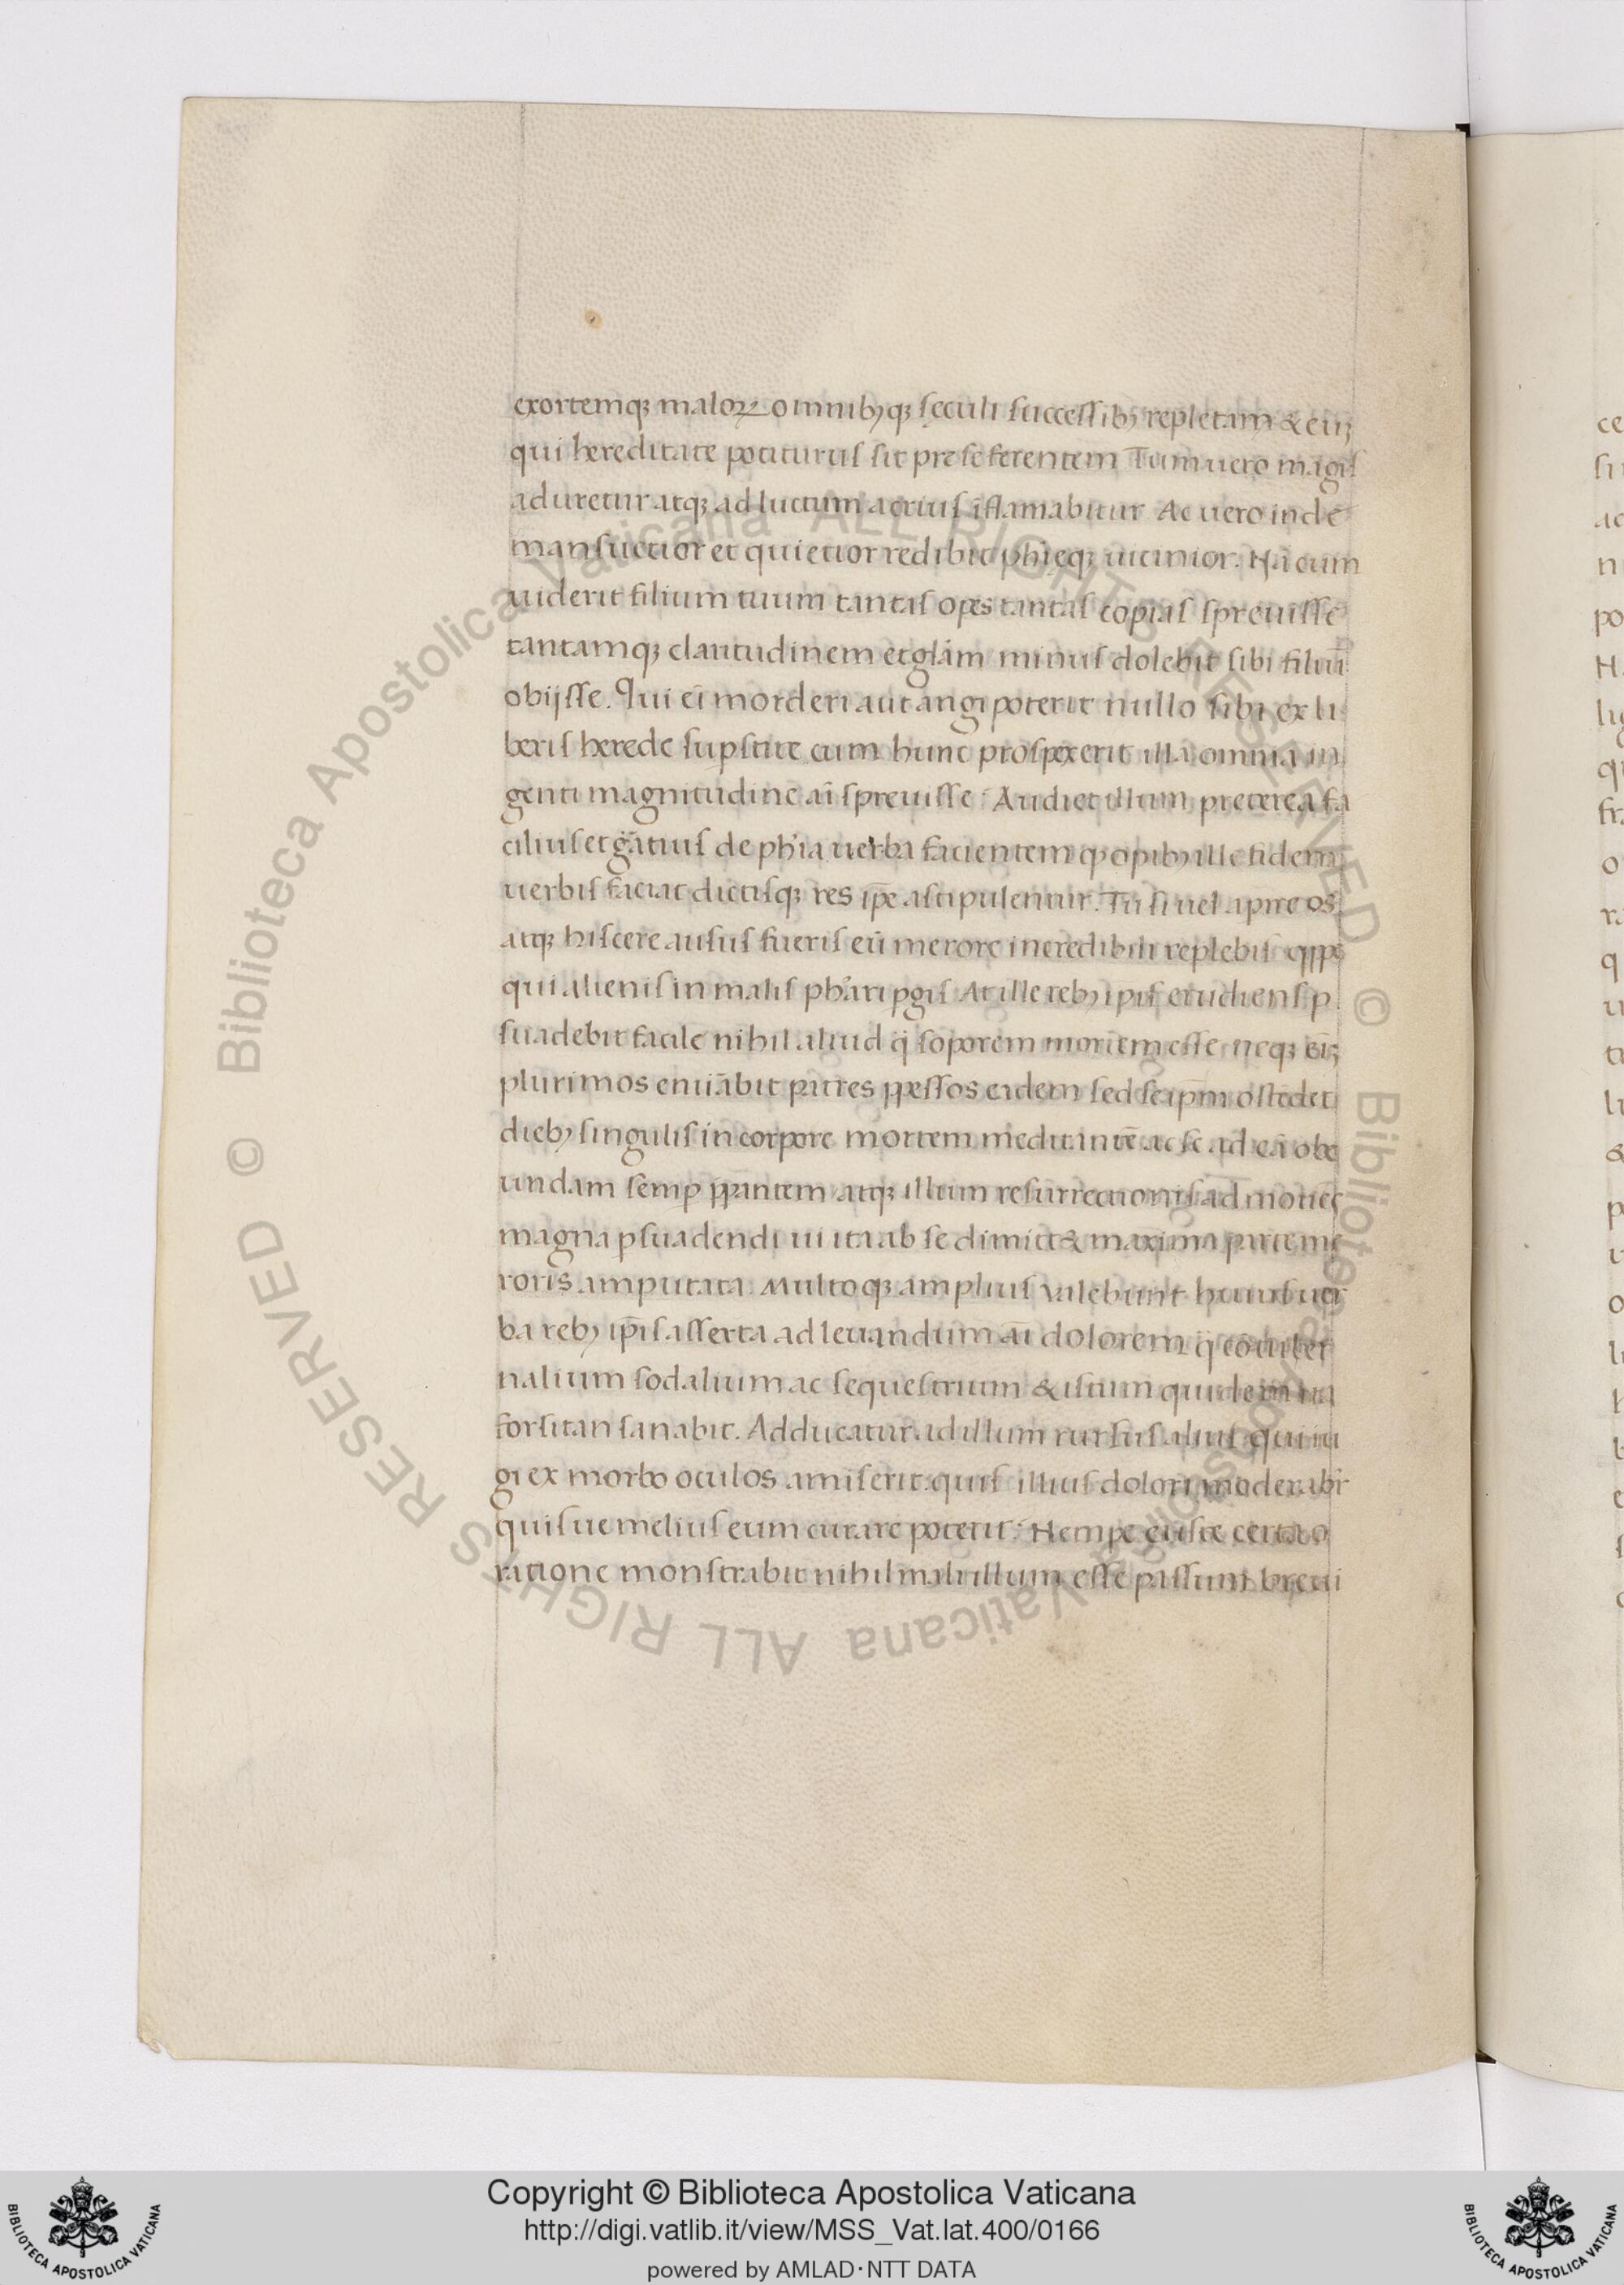 exortemq₃ maloꝝ omnibꝫq₃ sęculi successibꝫ repletam & eū
qui hereditate potiturus sit pre se ferentem Tum uero magis
aduretur atq₃ ad luctum acrius īflamabitur Ac uero inde
mansuetior et quietior redibit phīęq₃ uicinior. Nā cum
uiderit filium tuum tantas opes tantas copias spreuisse
tantamq₃ claritudinem et glām minus dolebit sibi filiū
obijsse. Qui eī morderi aut angi poterit nullo sibi ex li
beris herede supstite cum hunc prospexerit illa omnia in
genti magnitudine aī spreuisse: Audiet illum preterea fa
cilius et grātius de phīa uerba facientem ꝙ opibꝫ ille fidem
uerbis faciat dictisq₃ res ipē astipulentur. Tu si uel apire os
atq₃ hiscere ausus fueris eū merore incredibili replebis qppe
qui alienis in malis phāri pgis At ille rebꝫ ipīs erudiens p
suadebit facile nihil aliud q̄ soporem mortem esse neq₃ eī
plurimos enūabit patres ppessos eidem sed seipm̄ ostēdet
diebꝫ singulis in corpore mortem meditantē ac se ad eā obe
undam semp pparantem atq₃ illum resurrectionis ad monēs
magna psuadendi ui ita ab se dimict & maxima parte mę
roris amputata Multoq₃ amplius valebunt huius uer
ba rebꝫ ipīs asserta ad leuandum aī dolorem q̄ cōuiter
nalium sodalium ac sequestrium & istum quidem ita
forsitan sanabit. Adducatur ad illum rursus alius qui iu
gi ex morbo oculos amiserit quis illius dolori moderabr̄
quisue melius eum curare poterit: Nempe eiuste certa
ratione monstrabit nihil mali illum esse passum breui
Copyright © Biblioteca Apostolica Vaticana
http://digi.vatlib.it/view/MSS_Vat.lat.400/0166
powered by AMLAD·NTT DATA